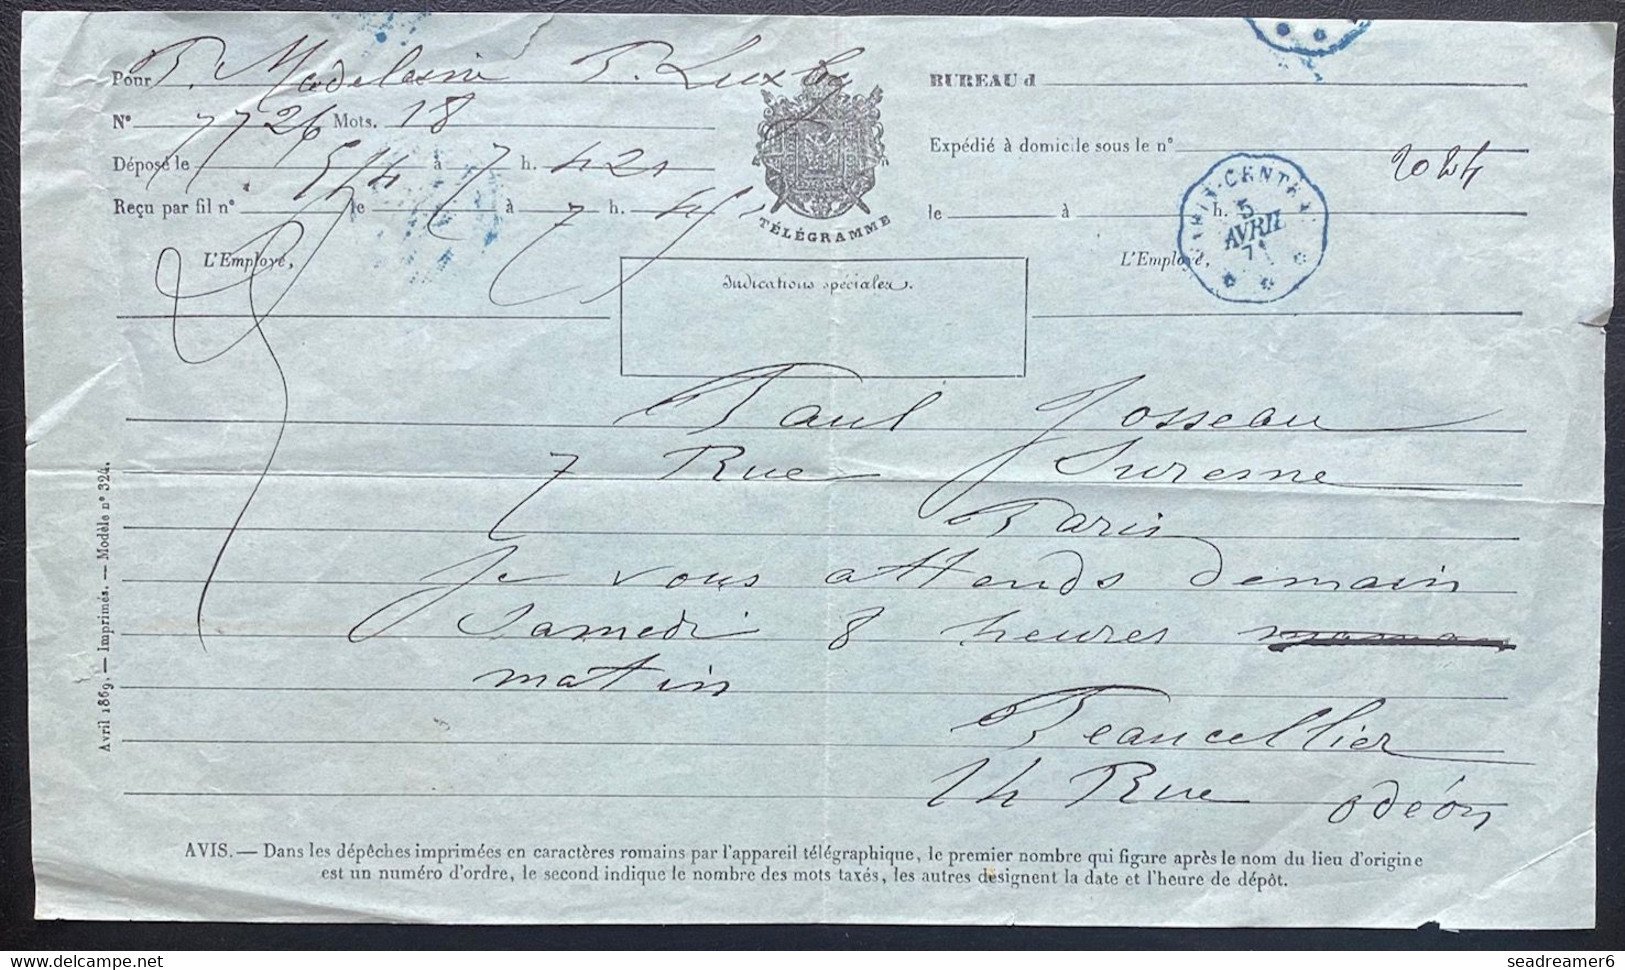 Pour P. Madeleine de P. Luxbg
BUREAU d
N° 7726 Mots. 18
Déposé le 5/4 à 7 h. 42
Expédié à domicile sous le n°
Reçu par fil n° le à 7 h. 45
le à h.
TÉLÉGRAMME
CENTRAL
5
AVRIL
71
L'Employé,
L'Employé,
Indications spéciales.
Paul Josseau
7 Rue Suresne
Paris
Je vous attends demain
Samedi 8 heures
matin
Beaucellier
14 Rue odéon
Avril 1869. — Imprimés. — Modèle n° 324.
AVIS. — Dans les dépêches imprimées en caractères romains par l'appareil télégraphique, le premier nombre qui figure après le nom du lieu d'origine
est un numéro d'ordre, le second indique le nombre des mots taxés, les autres désignent la date et l'heure de dépôt.
delcampe.net
seadreamer6